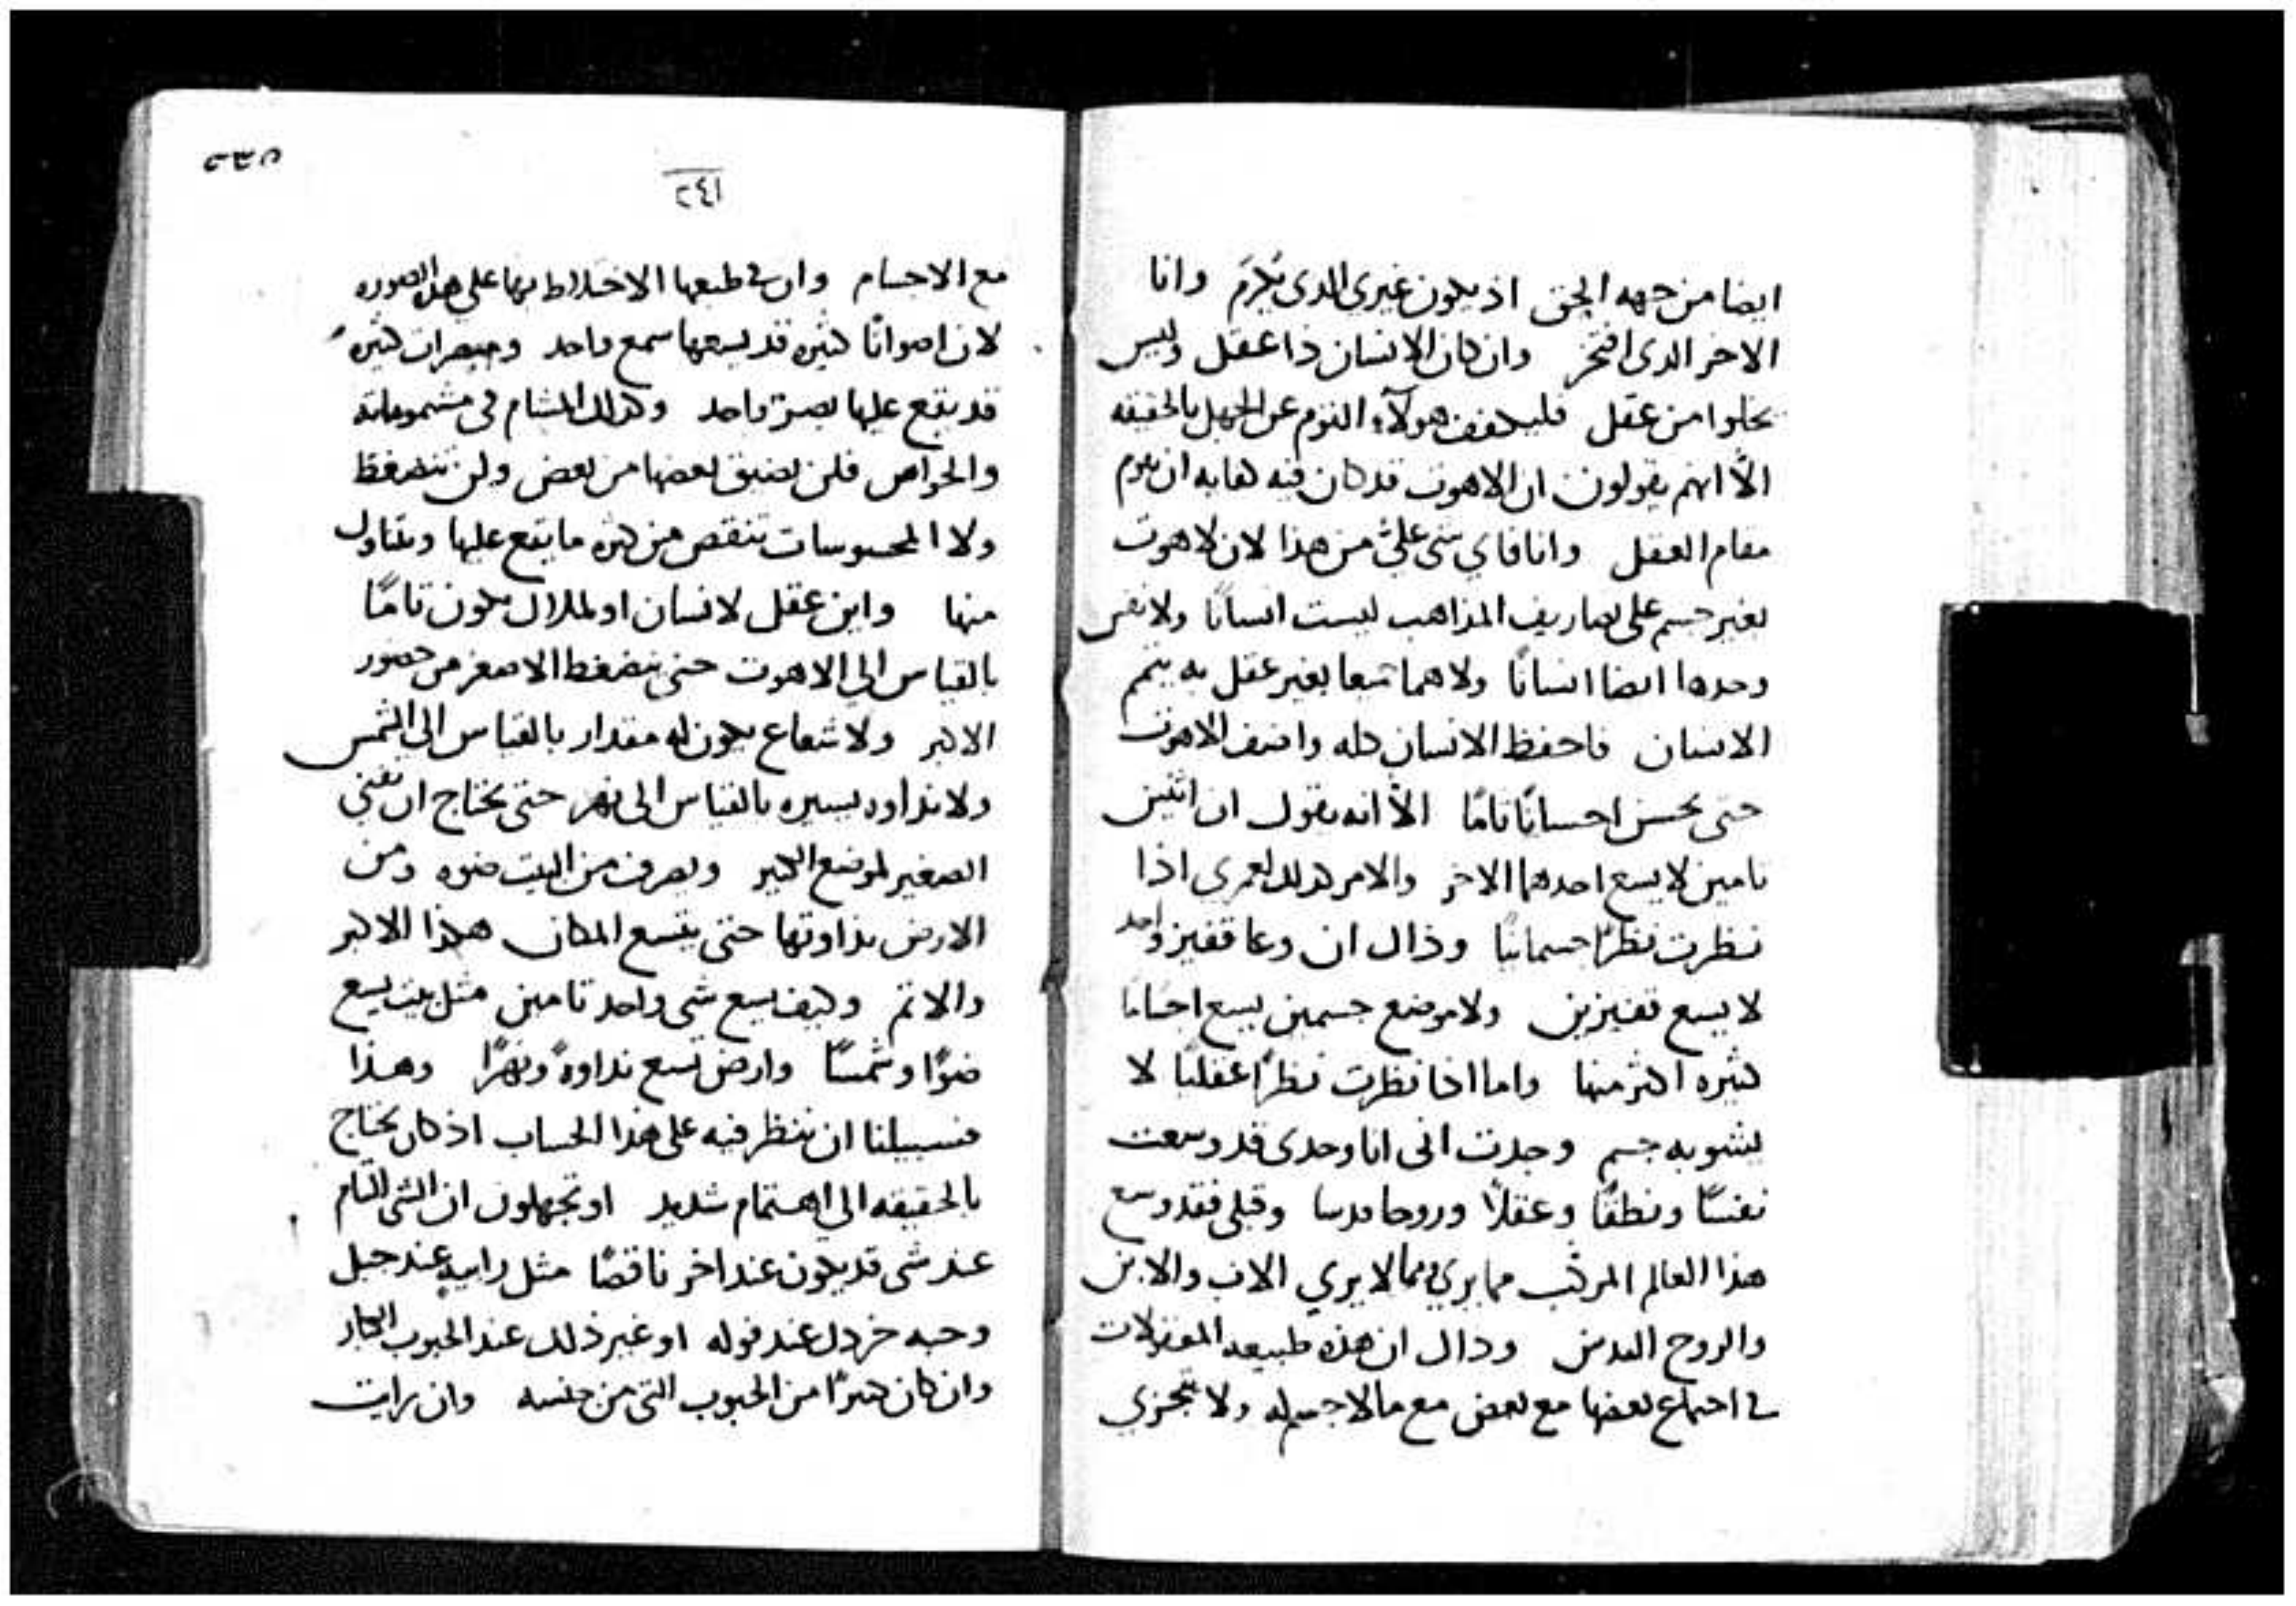 ايضا من جهه الجن اذ يكون غيرى الدى يكرم وانا
الاخر الدى افتخر وان كان الانسان ذا عقل وليس
يخلوا من عقل فليكفف هولآء القوم عن الجهل بالحقيقه
الّا انهم يقولون ان الاهوت قد كان فيه كفايه ان يقوم
مقام العقل وانا فاي شى علىّ من هذا لان لاهوت
بغير جسم على تصاريف المذاهب ليست انسانًا ولا نفس
وحدها ايضا انسانًا ولا هما جميعا بغير عقل به يتم
الانسان فاحفظ الانسان كله واضف الاهوت
حتى يحسن احسانًا تامًا الّا انه يقول ان اثنين
تامين لا يسع احدهما الاخر والامر كذلك لعمرى اذا
نظرت نظرًا جسمانيًا وذاك ان وعا قفيز واحد
لا يسع قفيزين ولا موضع جسمين يسع اجسامًا
كثيره اكثر منها واما اذا نظرت نظرًا عقليًا لا
يشوبه جسم وجدت انى انا وحدى قد وسعت
نفسًا ونطقًا وعقلًا وروحا قدسا وقبلى فقد وسع
هذا العالم المركب مما يرى ومما لا يري الاب والابن
والروح القدس وذاك ان هذه طبيعه المعقولات
فى اجتماع بعضها مع بعض مع ما لا جسم له ولا تتجزي
٢٣٥
٢٤١
مع الاجسام وان فى طبعها الاختلاط بها على هذه الصوره
لان اصواتًا كثيره قد يسعها سمع واحد ومبصرات كثيره
قد يقع عليها بصر واحد وكذلك المشام فى مشموماته
والحواس فلن يضيق بعضها من بعض ولن تنضغط
ولا المحسوسات تنقص من كثره ما يقع عليها ويتناول
منها واين عقل لانسان او لملاك يكون تامًا
بالقياس الي الاهوت حتى ينضغط الاصغر من حضور
الاكبر ولا شعاع يكون له مقدار بالقياس الى الشمس
ولا نداوه يسيره بالقياس الى نهر حتى يحتاج ان نفنى
الصغير لموضع الكبير ويصرف من البيت ضوه ومن
الارض نداوتها حتى يتسع المكان هكذا الاكبر
والاتم وكيف يسع شى واحد تامين مثل بيت يسع
ضوًا وشمسًا وارض تسع نداوةً ونهرًا وهذا
فسبيلنا ان ننظر فيه على هذا الحساب اذ كان يحتاج
بالحقيقه الي اهتمام شديد او تجهلون ان الشى التام
عند شى قد يكون عند اخر ناقصًا مثل رابيه عند جبل
وحبه خردل عند فوله او غير ذلك عند الحبوب الكبار
وان كان كبيرًا من الحبوب التى من جنسه وان رايت